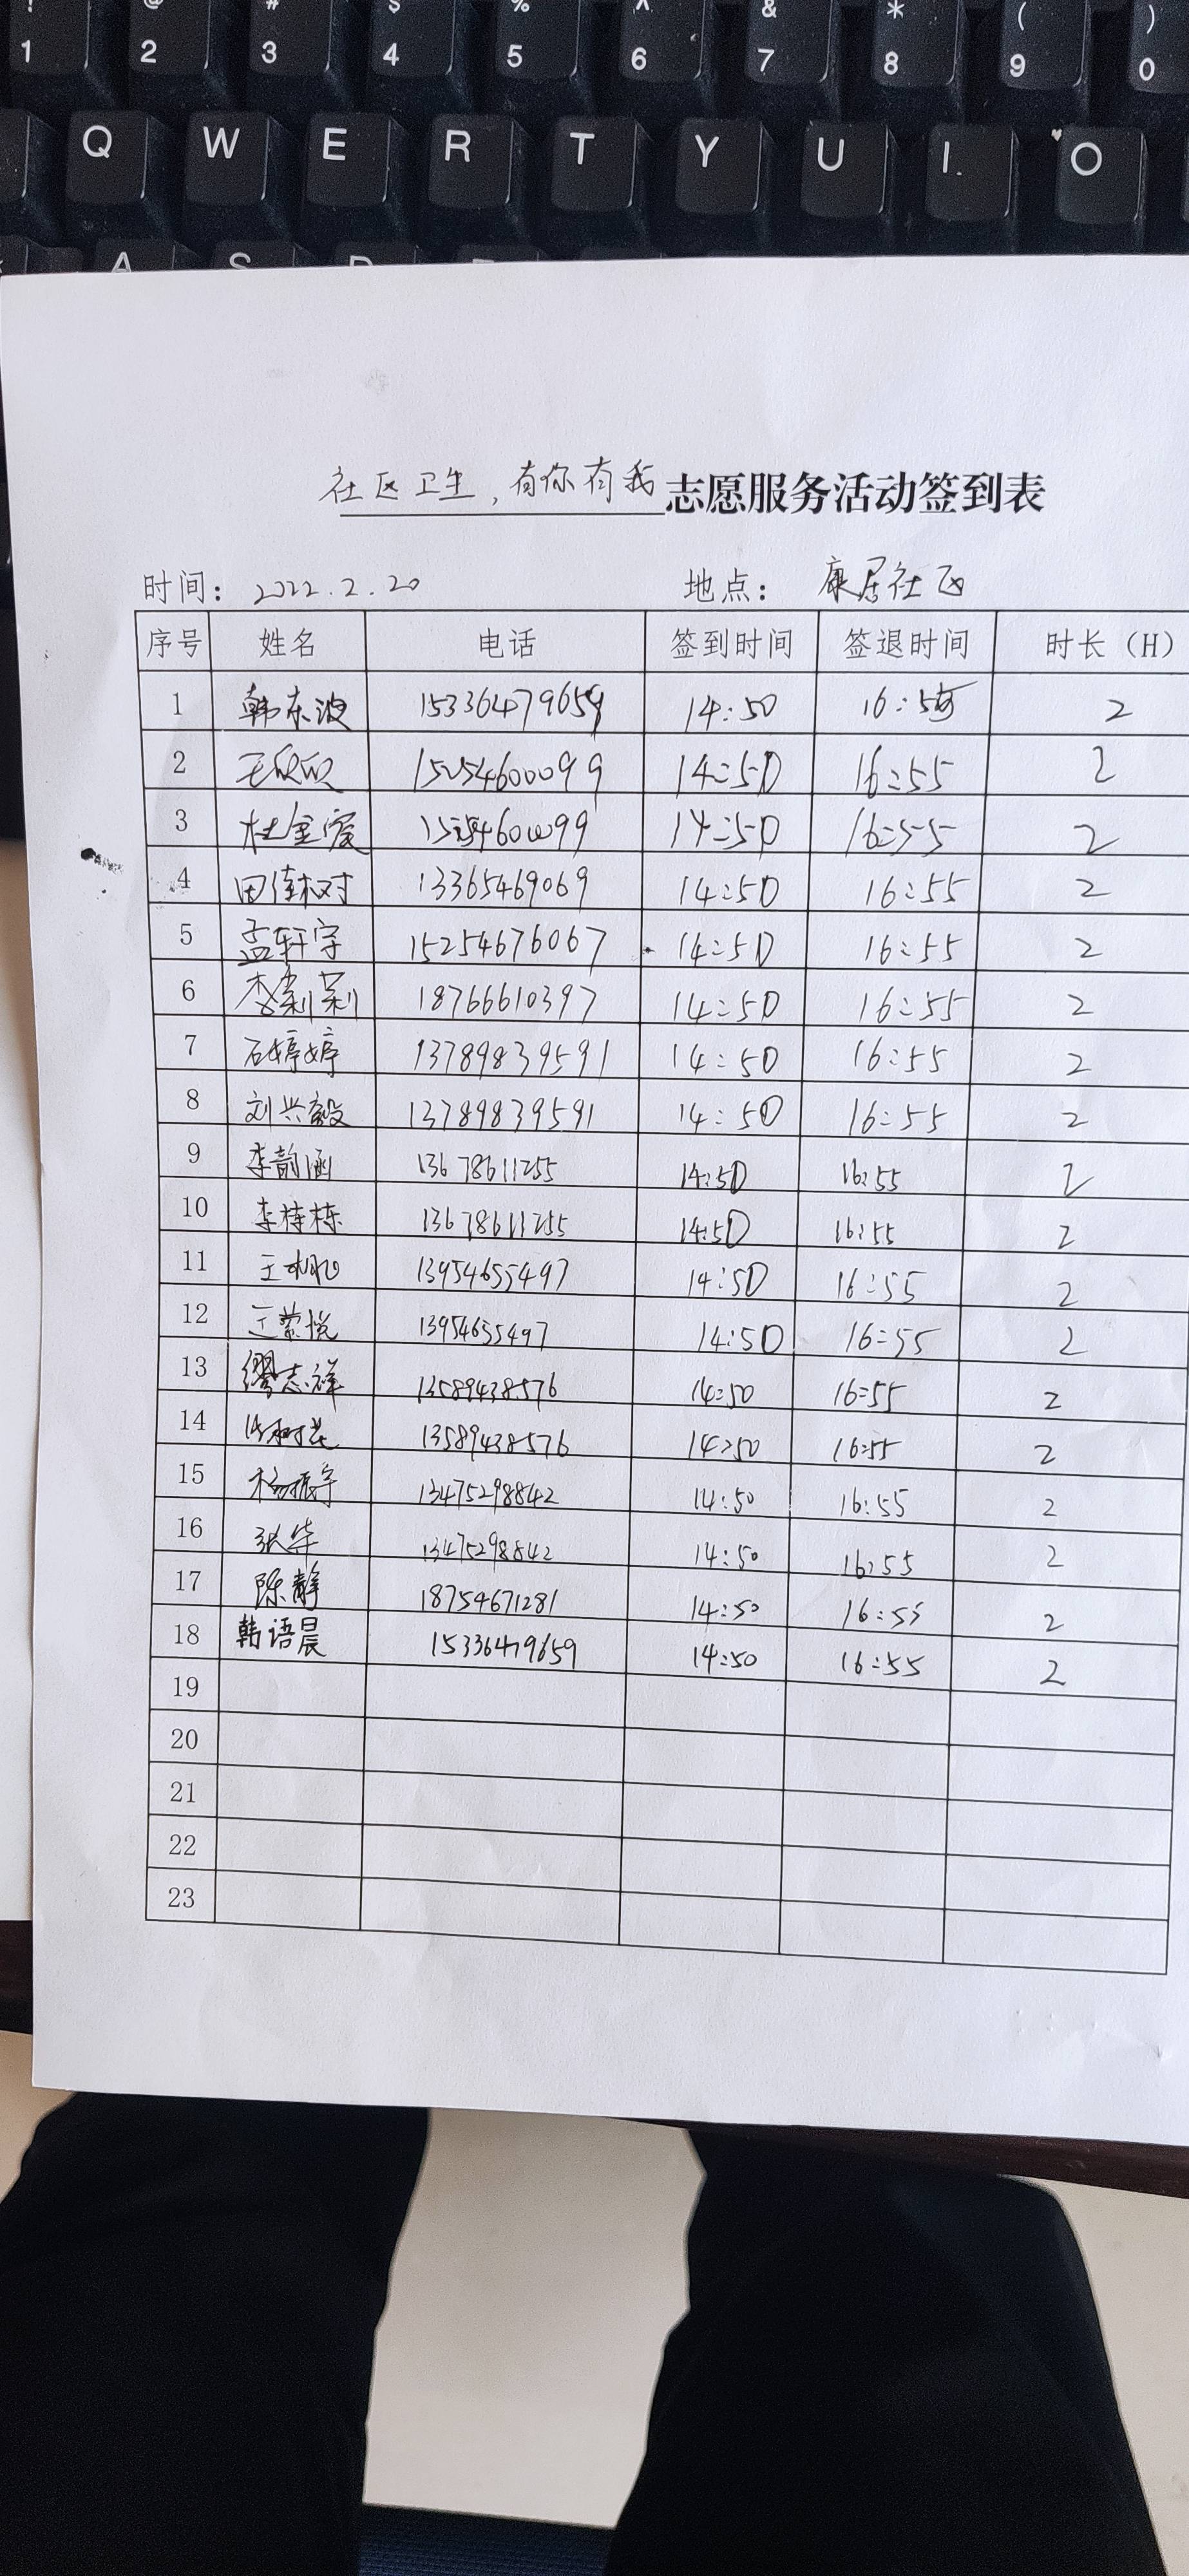 ! @ # $ % ^ & * ( )
1 2 3 4 5 6 7 8 9 0
Q W E R T Y U I O
A S D
社区卫生，有你有我志愿服务活动签到表
时间： 2022.2.20 地点： 康居社区
序号 姓名 电话 签到时间 签退时间 时长（H）
1 韩东波 15336479659 14:50 16:55 2
2 王欣欣 15254600099 14:50 16:55 2
3 杜金霞 15254600099 14:50 16:55 2
4 田佳树 13365469069 14:50 16:55 2
5 孟轩宇 15254676067 14:50 16:55 2
6 李莉莉 18766610397 14:50 16:55 2
7 石婷婷 13789839591 14:50 16:55 2
8 刘兴毅 13789839591 14:50 16:55 2
9 李韵涵 13678611255 14:50 16:55 2
10 李梓栋 13678611255 14:50 16:55 2
11 王 13954655497 14:50 16:55 2
12 王蒙悦 13954655497 14:50 16:55 2
13 缪志祥 13589438576 14:50 16:55 2
14 13589438576 14:50 16:55 2
15 杨振宇 13475298842 14:50 16:55 2
16 张华 13475298842 14:50 16:55 2
17 陈静 18754671281 14:50 16:55 2
18 韩语晨 15336479659 14:50 16:55 2
19
20
21
22
23